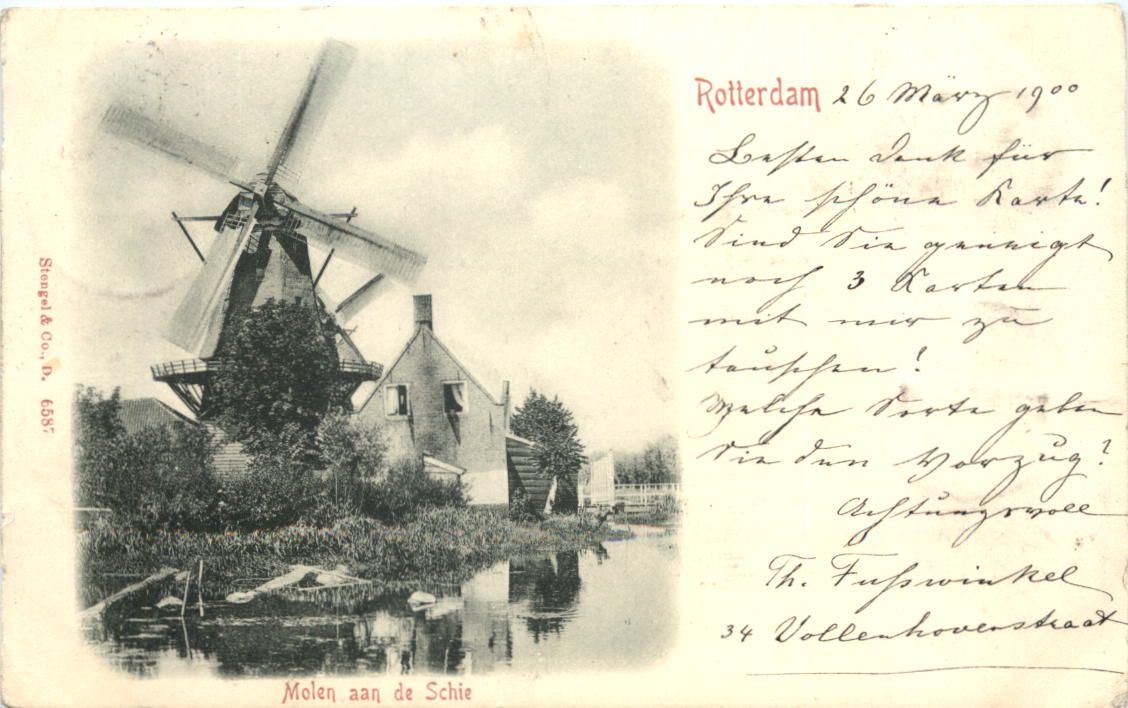 Rotterdam 26 März 1900
Besten Dank für
Ihre schöne Karte!
Sind Sie geneigt
noch 3 Karten
mit mir zu
tauschen!
Welche Sorte geben
Sie den Vorzug?
Achtungsvoll
Th. Fusswinkel
34 Vollenhovenstraat
Stengel & Co., D. 6587
Molen aan de Schie